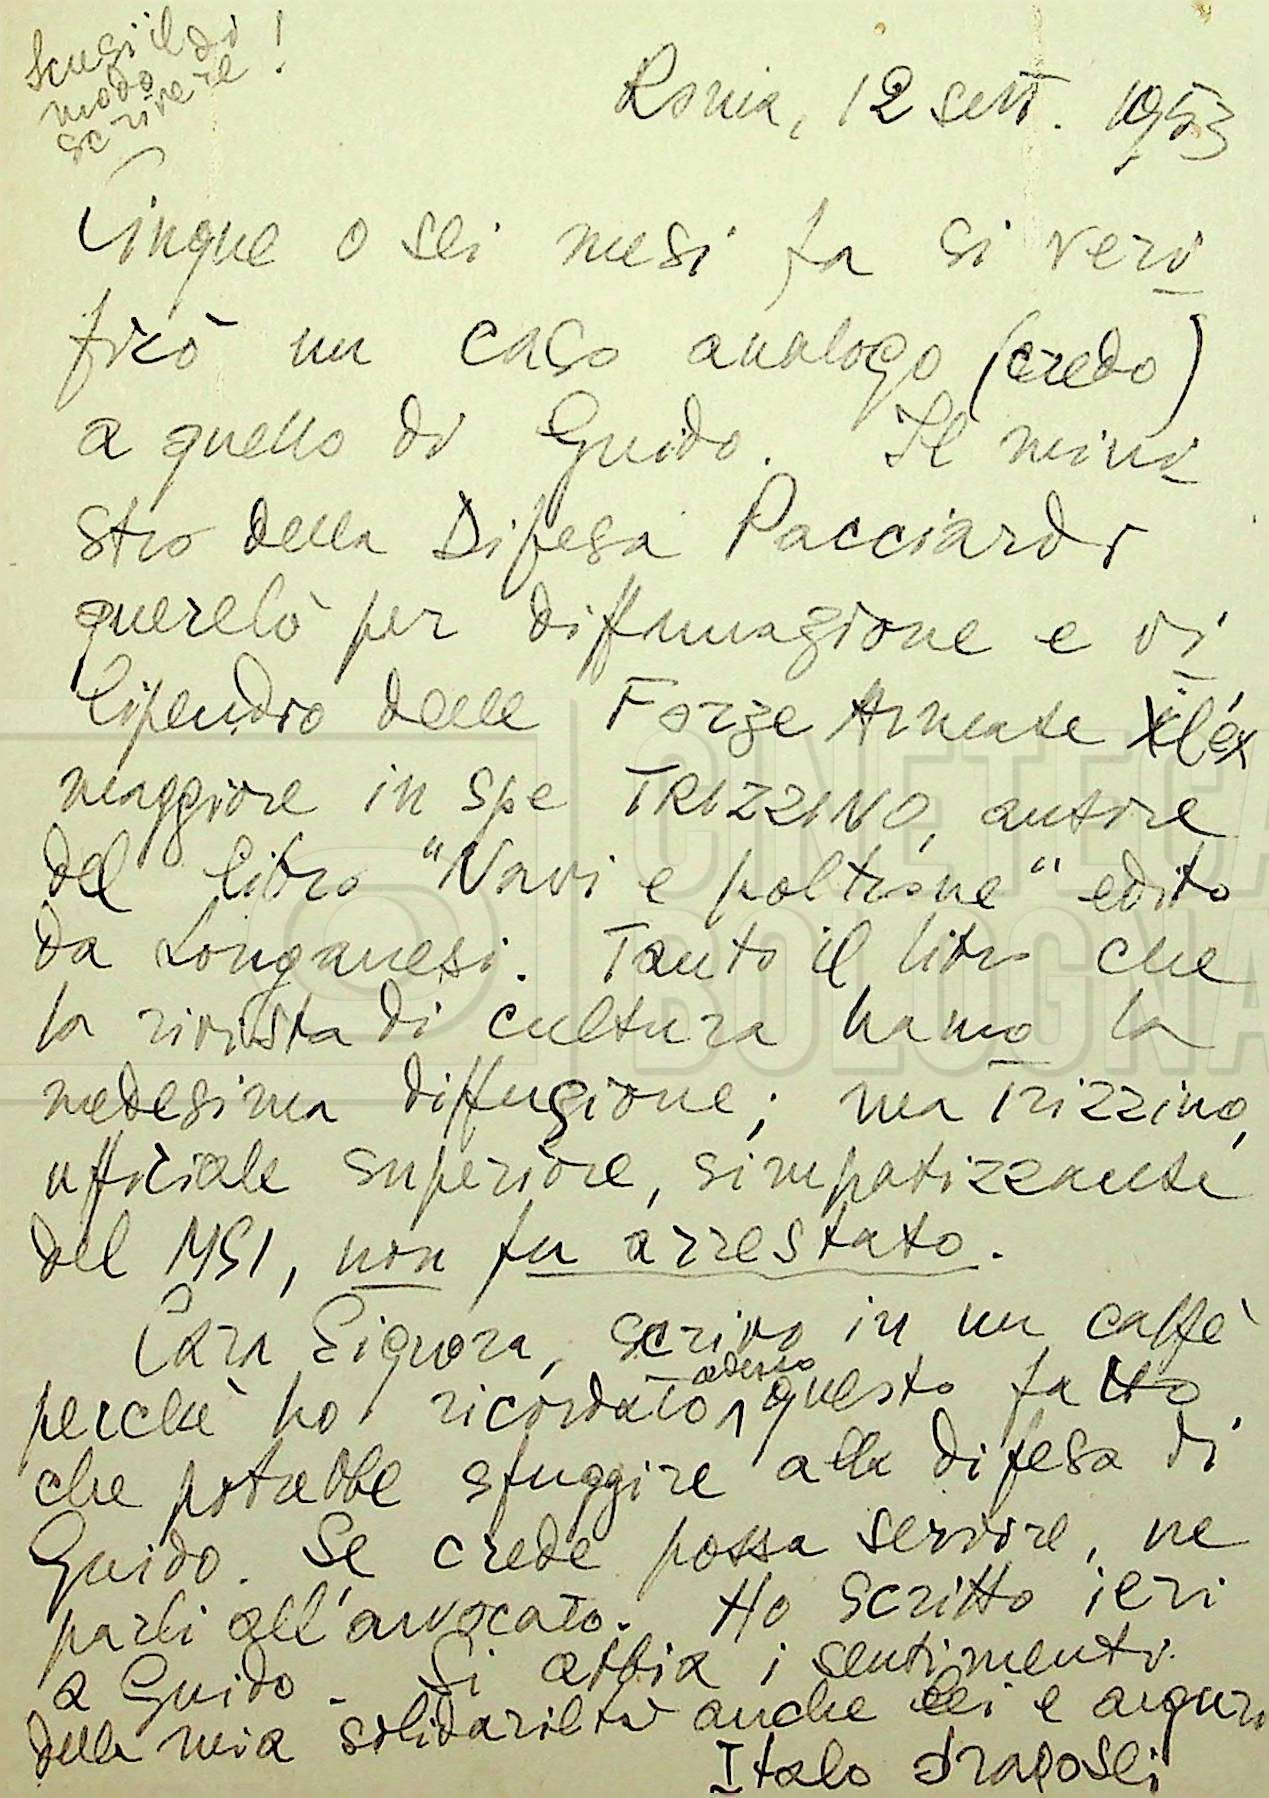 Scusi il
modo di
scrivere!
Roma, 12 sett. 1953
Cinque o sei mesi fa si veri
ficò un caso analogo (credo)
a quello di Guido. Il mini
stro della Difesa Pacciardi
querelò per diffamazione e vi
lipendio delle Forze Armate l'ex
maggiore in spe TRIZZINO, autore
del libro "Navi e poltrone" edito
da Longanesi. Tanto il libro che
la rivista di cultura hanno la
medesima diffusione; ma Trizzino,
ufficiale superiore, simpatizzante
del MSI, non fu arrestato.
Cara Signora, scrivo in un caffè
perché ho ricordato adesso questo fatto
che potrebbe sfuggire alla difesa di
Guido. Se crede possa servire, ne
parli all'avvocato. Ho scritto ieri
a Guido. Si abbia i sentimenti
della mia solidarietà anche Lei e auguri
Italo
CINETECA
BOLOGNA